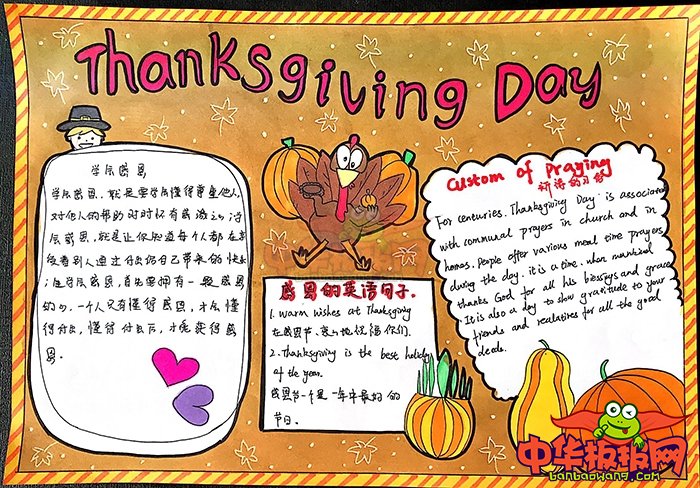 Thanksgiving Day
学会感恩
学会感恩,就是要学会懂得尊重他人,
对他人的帮助时时怀有感激之心
感恩,就是让你知道每个人都在享
受着别人通过付出给自己带来的快
学会感恩,首先要拥有一颗感恩
的心。一个人只有懂得感恩,才会懂
得付出,懂得付出后,才能获得感
恩。
感恩的英语句子.
1. warm wishes at Thanksgiving
在感恩节、衷心地祝福你们.
2. Thanksgiving is the best holiday
of the year.
感恩节是一年中最好的
节日.
Custom of Praying
祈祷的习俗
For centuries. Thanksgiving Day is associated
with communal prayers in church and in
homes. People offer various meal time prayers
during the day. it is a time. when mankind
thanks God for all his blessings and grace
It is also a day to show gratitude to your
friends and realatires for all the good
deeds.
中华板报网
banbaowang.com